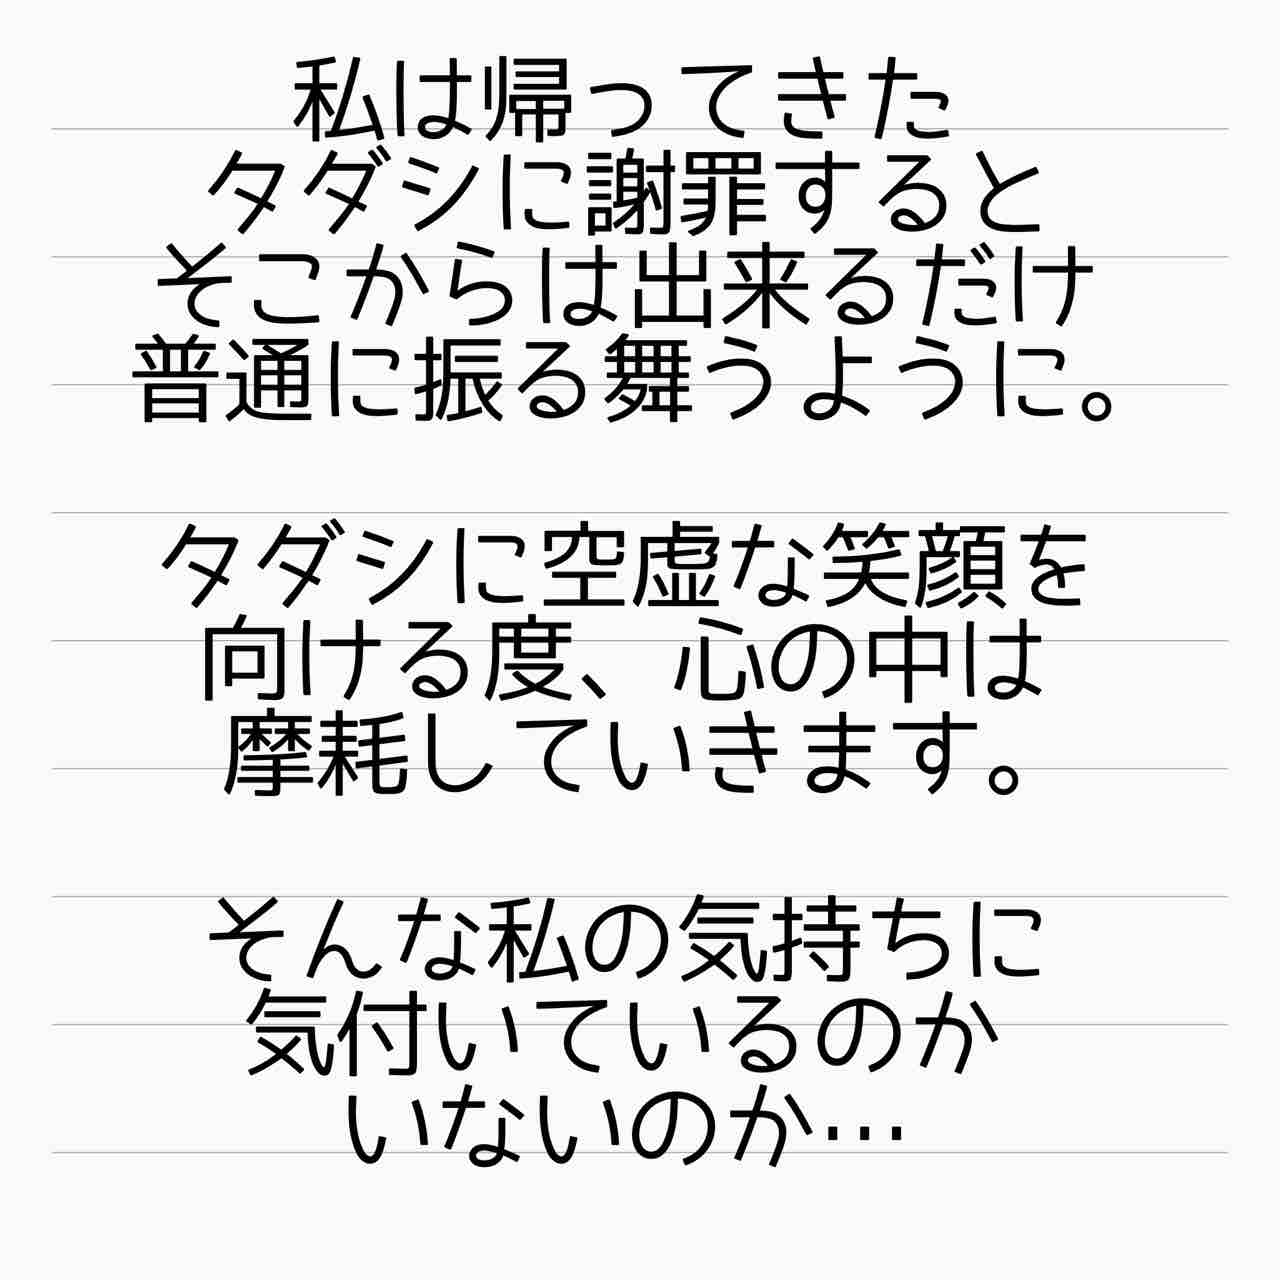 私は帰ってきた
タダシに謝罪すると
そこからは出来るだけ
普通に振る舞うように。
タダシに空虚な笑顔を
向ける度、心の中は
摩耗していきます。
そんな私の気持ちに
気付いているのか
いないのか…